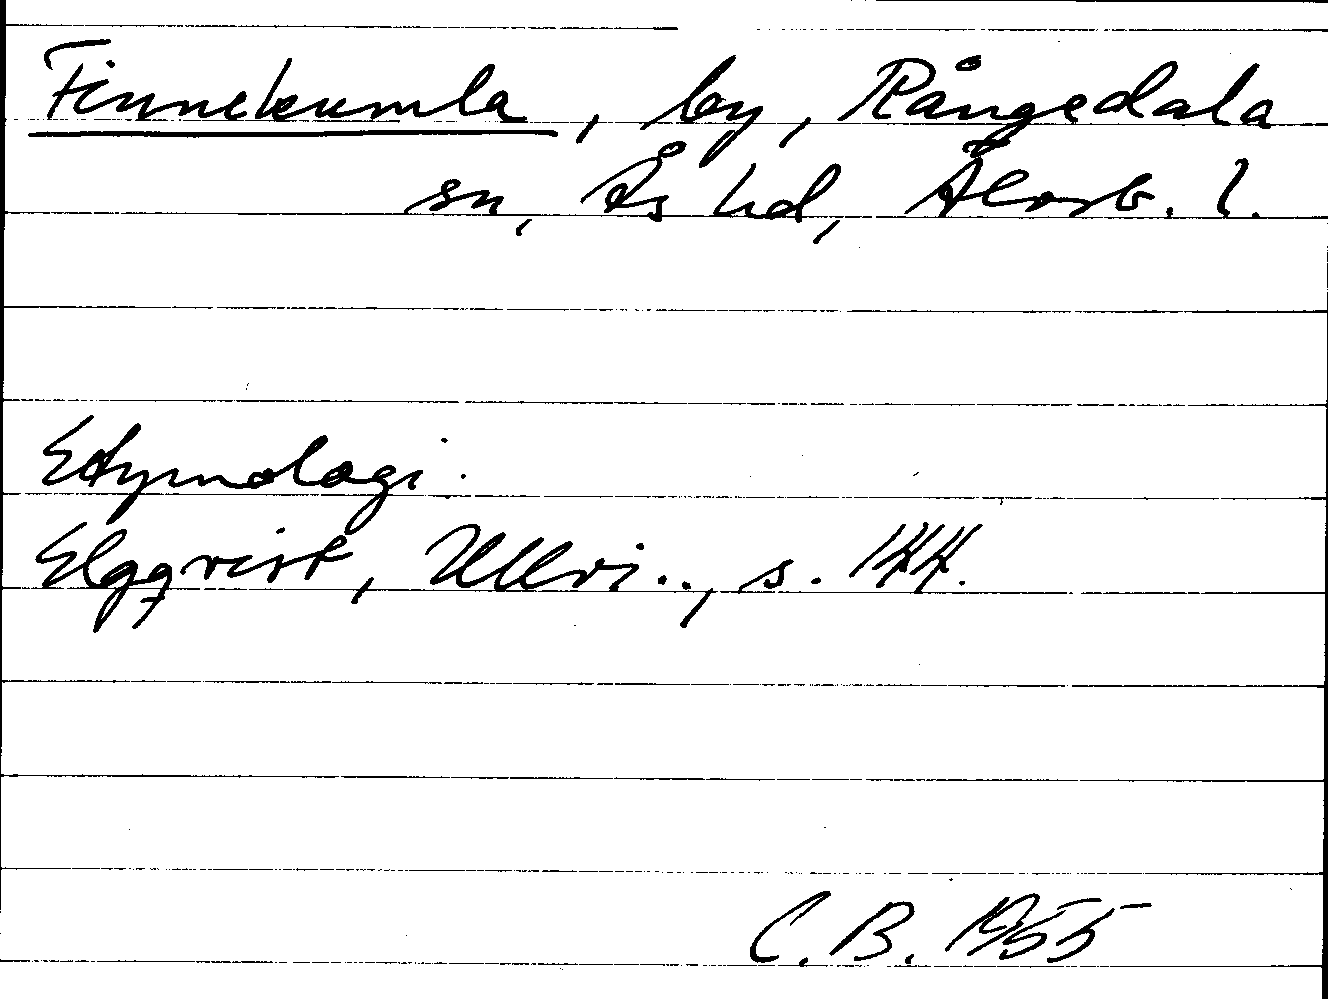 Finnekumla, by, Rångedala
sn, Ås hd, Älvsb. l.
Etymologi.
Elgqvist, Ullvi.., s. 144.
C.B. 1955